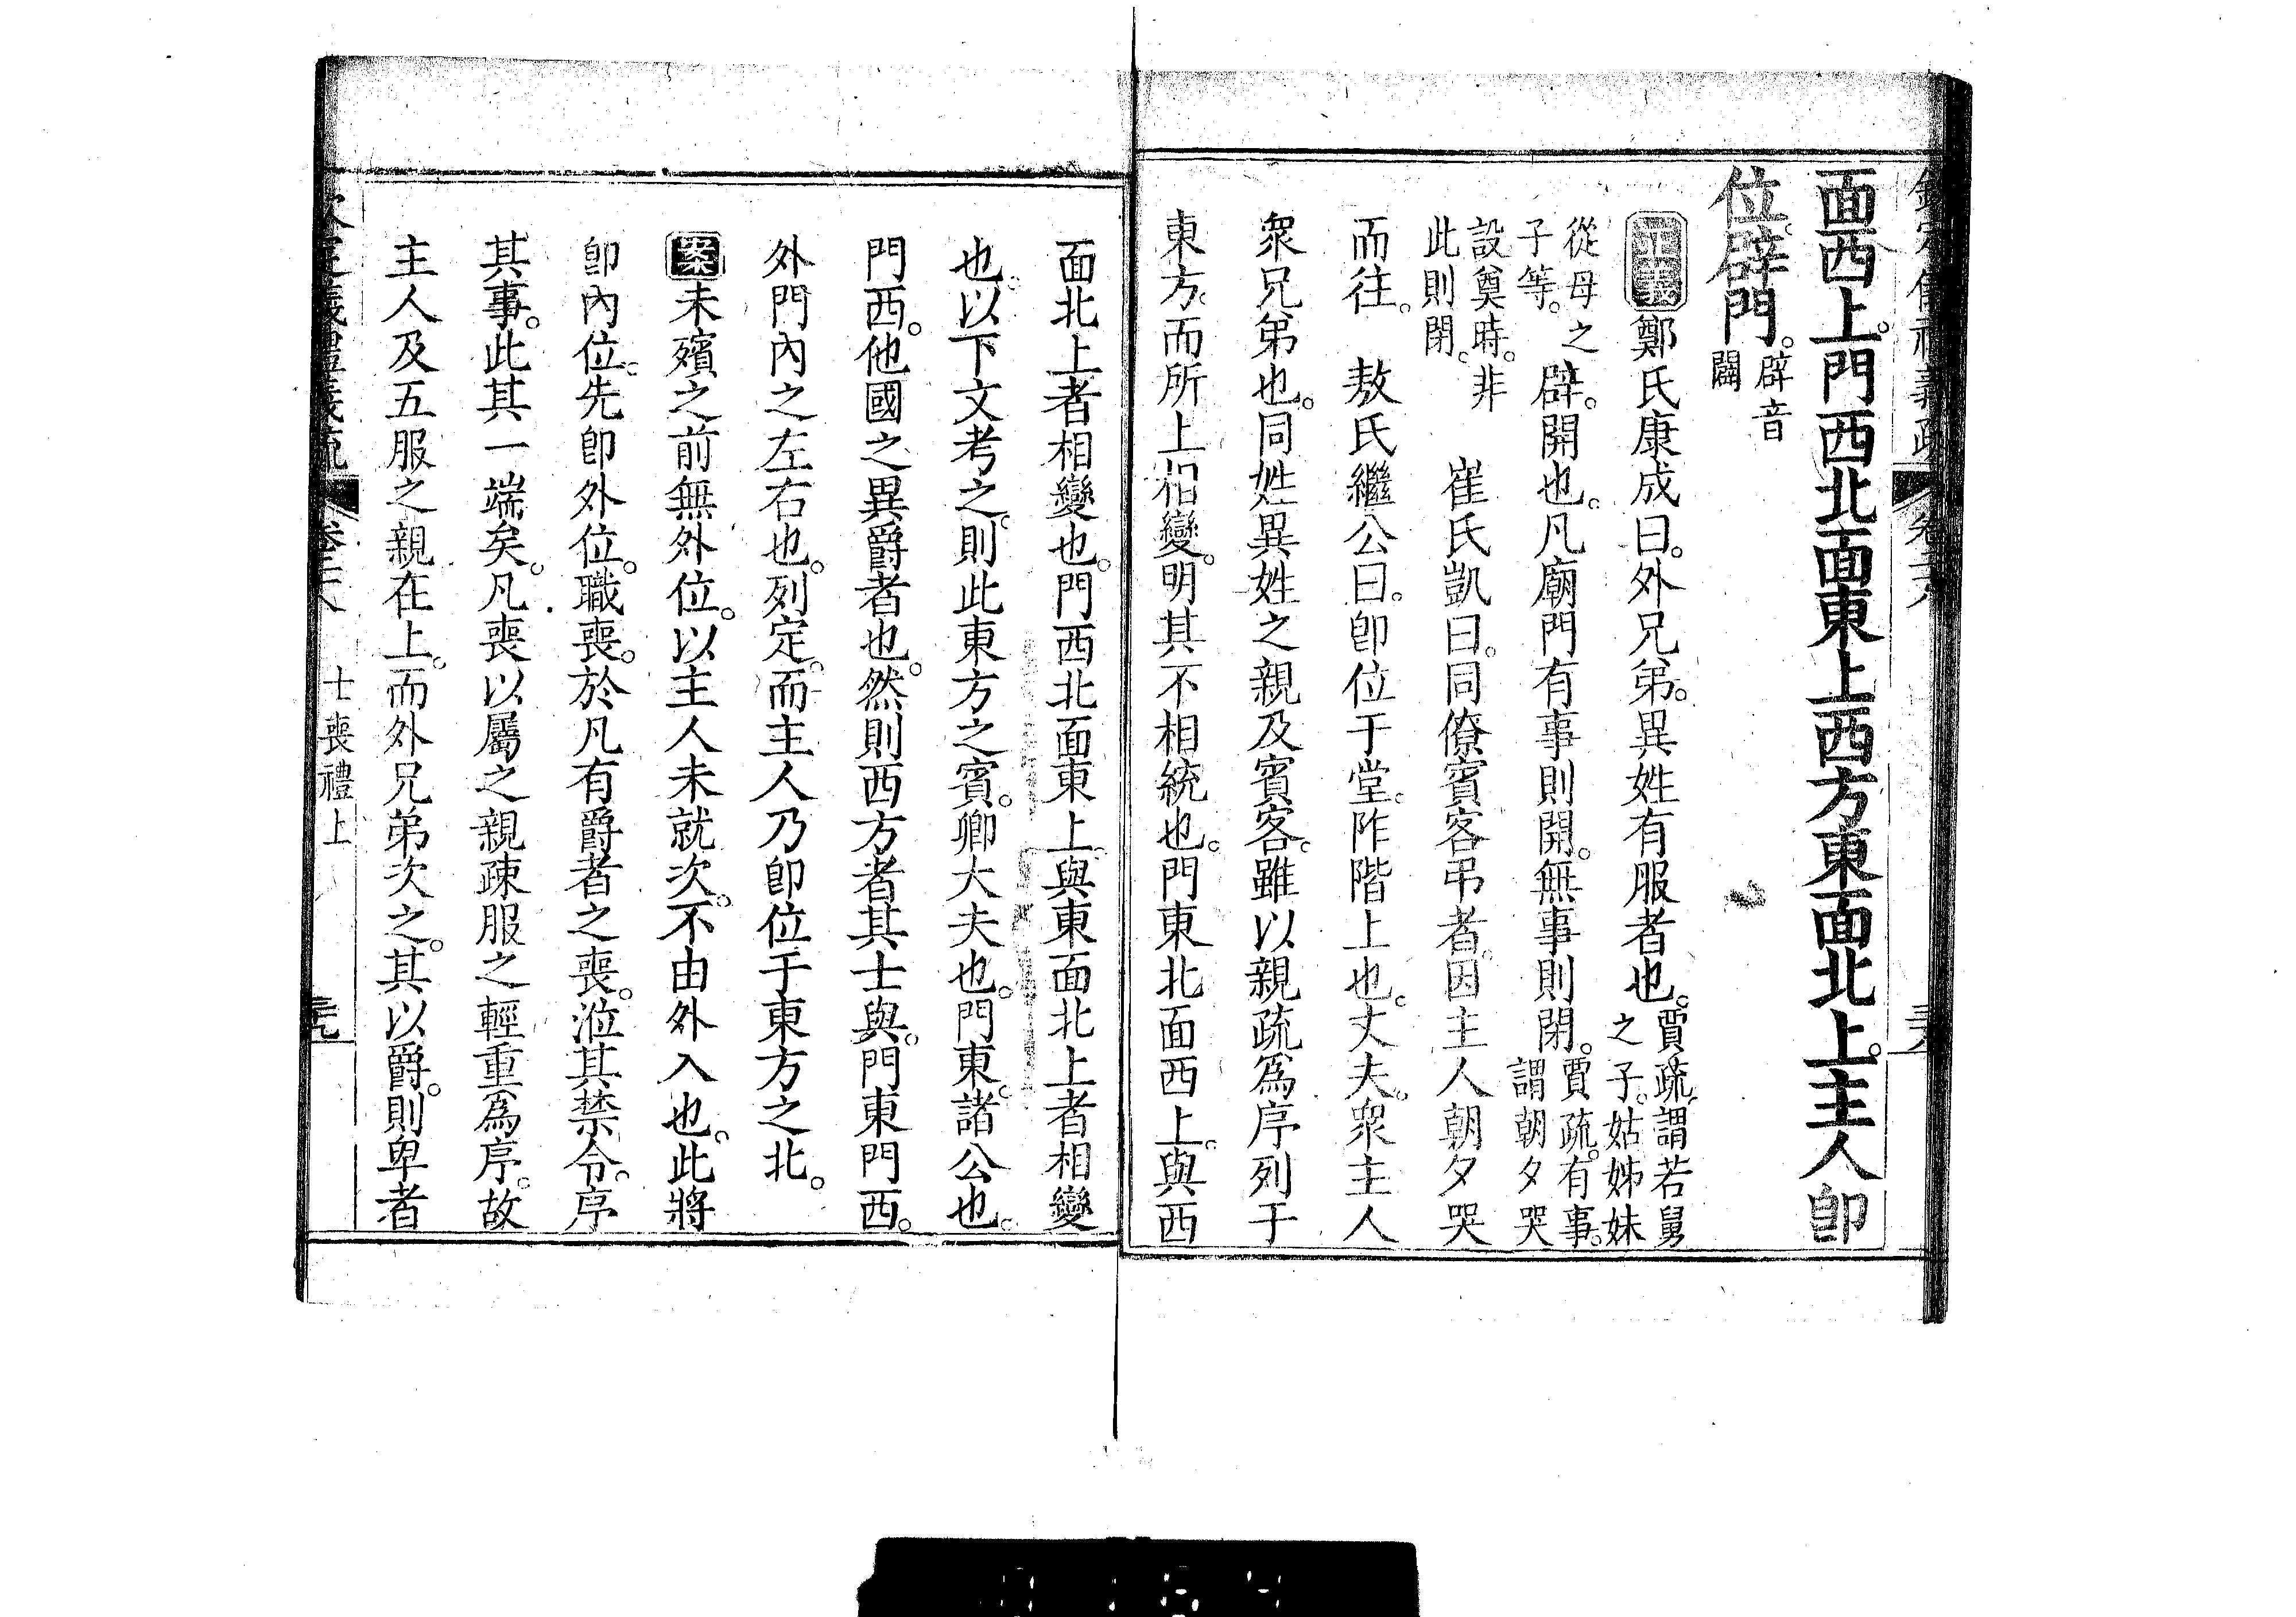 面西上。門西北面東上西方東面北上。主人卽
位。辟門。辟音闢
正義鄭氏康成曰。外兄弟。異姓有服者也。賈疏謂若舅之子。姑姊妹
從母之子等。辟。開也。凡廟門有事則開。無事則閉。賈疏。有事。謂朝夕哭
設奠時。非此則閉。崔氏凱曰。同僚賓客弔者。因主人朝夕哭
而往。敖氏繼公曰。卽位于堂。阼階上也。丈夫。眾主人
眾兄弟也。同姓異姓之親及賓客。雖以親疏爲序列于
東方。而所上相變。明其不相統也。門東北面西上。與西
面北上者相變也。門西北面東上。與東面北上者相變
也。以下文考之。則此東方之賓。卿大夫也。門東。諸公也。
門西。他國之異爵者也。然則西方者其士與。門東門西。
外門內之左右也。列定。而主人乃卽位于東方之北。
案未殯之前無外位。以主人未就次。不由外入也。此將
卽內位。先卽外位。職喪。於凡有爵者之喪。涖其禁令。序
其事。此其一端矣。凡喪以屬之親疎服之輕重爲序。故
主人及五服之親在上。而外兄弟次之。其以爵。則卑者
士喪禮上